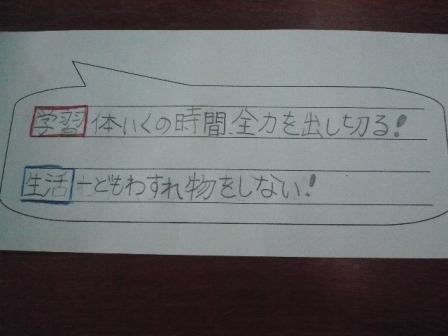 学習 体いくの時間、全力を出し切る!
生活 一どもわすれ物をしない!